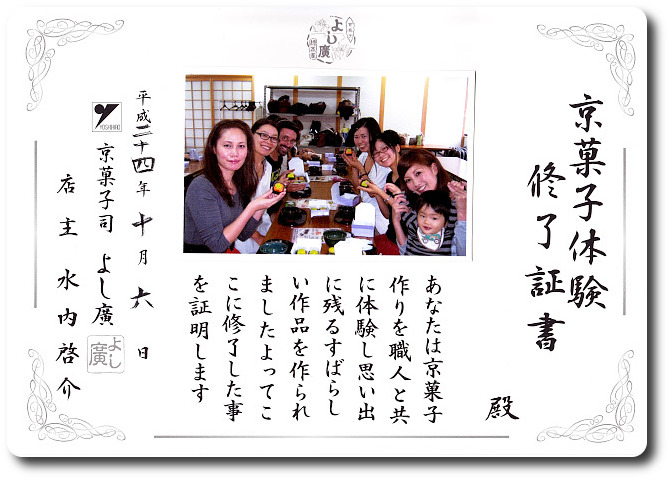 よし廣
京菓子体験
修了証書
殿
あなたは京菓子
作りを職人と共
に体験し思い出
に残るすばらし
い作品を作られ
ましたよってこ
こに修了した事
を証明します
平成二十四年十月六日
YOSHIHIRO
京菓子司 よし廣
よし廣
店主 水内啓介